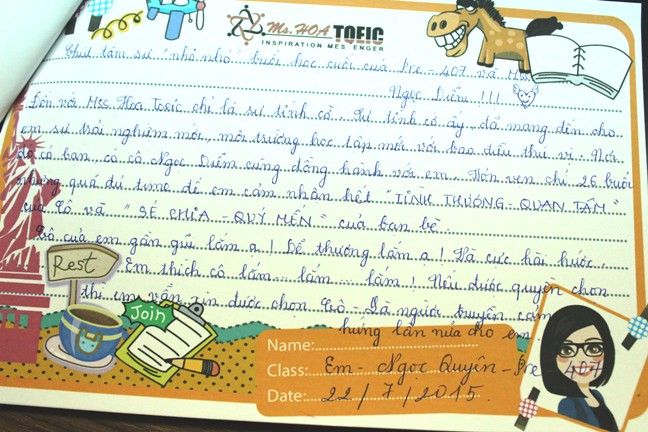 Ms. HOA TOEIC
INSPIRATION MESSENGER
Chút tâm sự "nhỏ nhỏ" buổi học cuối của Pre - 407 và Mss
Ngọc Diễm !!!
Đến với Mss Hoa Toeic chỉ là sự tình cờ. Sự tình cờ ấy, đã mang đến cho
em sự trải nghiệm mới, môi trường học tập mới với bao điều thú vị. Nơi
đó có bạn có cô Ngọc Diễm cùng đồng hành với em. Vỏn vẹn chỉ 26 buổi
nhưng quá đủ time để em cảm nhận hết "TÌNH THƯƠNG - QUAN TÂM"
của Cô và "SẺ CHIA - QUÝ MẾN" của bạn bè.
Cô của em gần gũi lắm ạ ! Dễ thương lắm ạ ! Và cực hài hước
Em thích cô lắm ... lắm ... lắm ! Nếu được quyền chọn
thì em vẫn xin được chọn Cô - Là người truyền cảm
hứng lần nữa cho em
Rest
Join
Name:
Class: Em - Ngọc Quyên - Pre - 407
Date: 22 / 7 / 2015